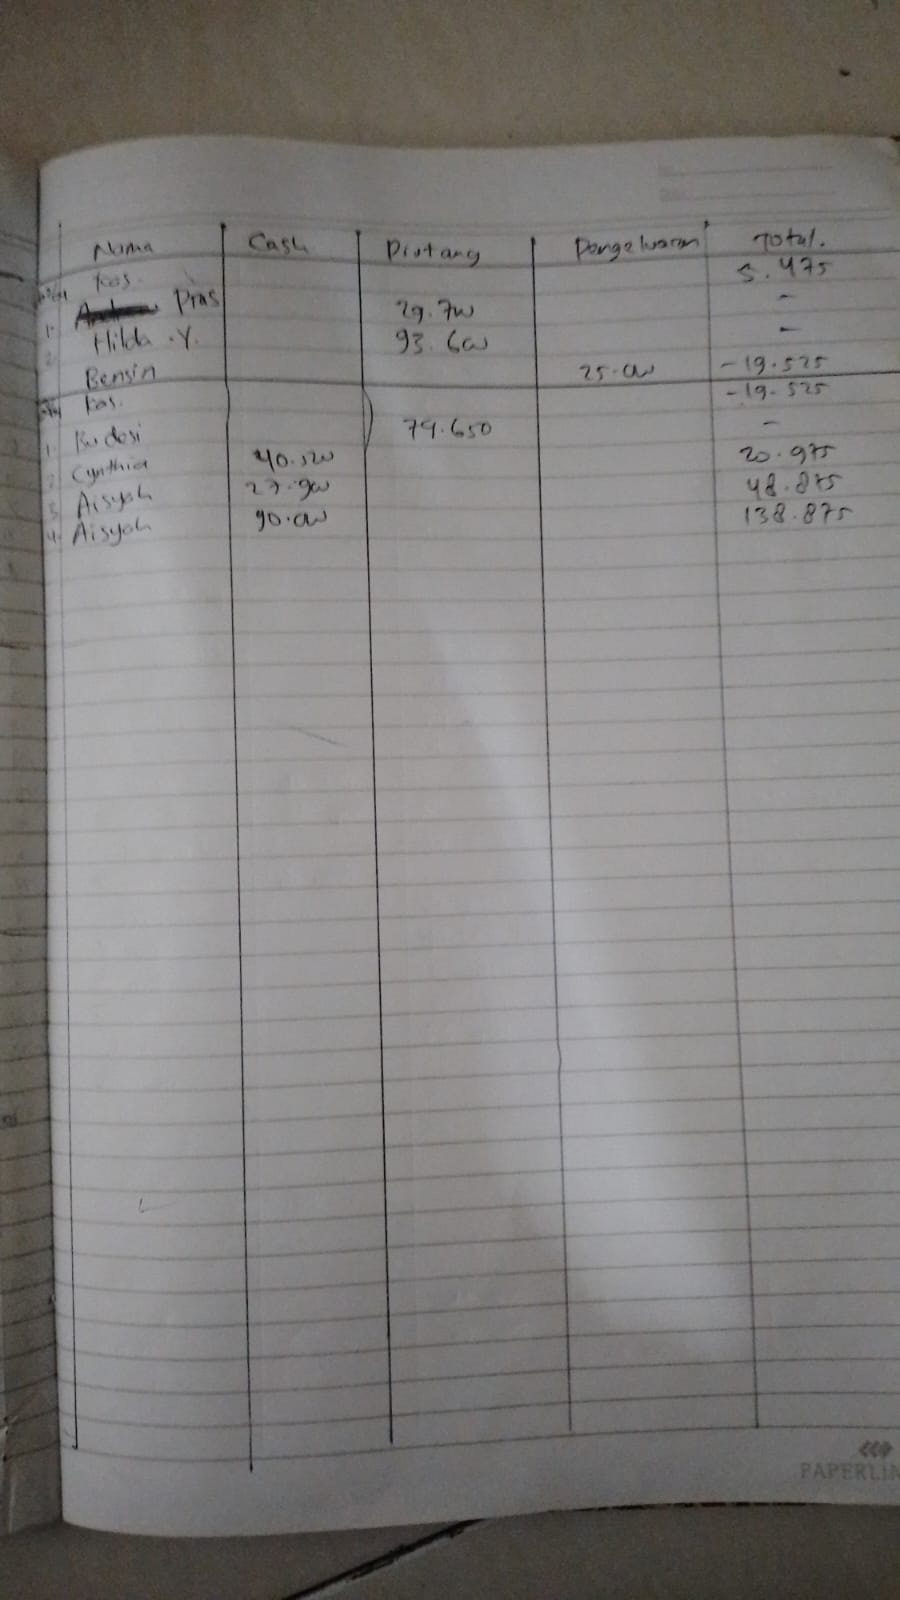 Nama Cash Piutang Pengeluaran Total.
Kas. 5.475
1. Pras 29.700 -
2. Hilda .Y. 93.600 -
Bensin 25.000 -19.525
Kas. -19.525
1. Bu desi 79.650 -
2. Cynthia 40.500 20.975
3. Aisyah 27.900 48.875
4. Aisyah 90.000 138.875
PAPERLIN